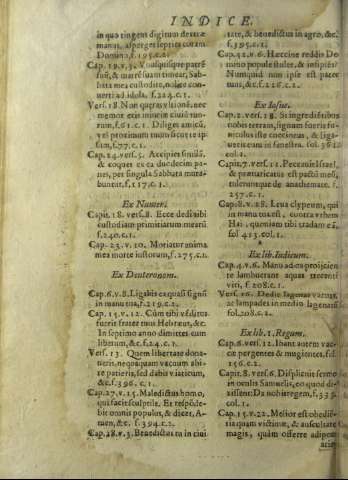 INDICE.
in quo tingens digitum dextræ
manus, asperget septies coram
Domino, f.195. c.2.
Cap. 19. v.3. Vnusquisque patrē
suū, & matrē suam timeat, Sab-
bata mea custodite, nolite con-
uerti ad idola, f.224. c.1.
Vers. 18 Non quæras vltionē, nec
memor eris iniuriæ ciuiū tuo-
rum, f.61. c.1. Diliges amicū,
vel proximum tuum sicut te ip-
sum, f.77. c.1.
Cap. 24. vers. 5. Accipies similā,
& coques ex ea duodecim pa-
nes, per singula Sabbata muta-
buntur, f.117. c.1.
Ex Numer.
Capit. 18. vers. 8. Ecce dedi tibi
custodiam primitiarum mearū
f.240. c.1.
Cap. 23. v. 10. Moriatur anima
mea morte iustorum, f.275. c.1.
Ex Deuteronom.
Cap. 6. v. 8. Ligabis ea quasi signū
in manu tua, f.219. c.2.
Cap. 15. v. 12. Cùm tibi vēditus
fuerit frater tuus Hebræus, &c.
In septimo anno dimittes cum
liberum, &c. f.24. c.1.
Vers. 13. Quem libertate dona-
ueris, nequaquam vacuum abi-
re patieris, sed dabis viaticum,
&c. f.396. c.1.
Cap. 27. v. 15. Maledictus homo,
qui facit sculptile. Et respōde-
bit omnis populus, & dicet, A-
men, &c. f.394. c.2.
Cap. 28. v. 3. Benedictus tu in ciui
tate, & benedictus in agro, &c.
f.395. c.1.
Cap. 32. v. 6. Hæccine reddis Do
mino popule stulte, & insipiēs?
Numquid non ipse est pater
tuus, &c. f.226. c.2.
Ex Iosue.
Cap. 2. vers. 18. Si ingredientibus
nobis terram, signum fuerit fu-
niculus iste coccineus, & liga-
ueris eum in fenestra. fol. 361.
col. 1.
Capit. 7. vers. 11. Peccauit Israel,
& præuaricatus est pactū meū,
tuleruntque de anathemate. f.
257. c.1.
Cap. 8. v. 18. Leua clypeum, qui
in manu tua est, contra vrbem
Hai, quoniam tibi tradam eā,
fol 413. col. 1.
*
Ex lib. Iudicum.
Cap. 4. v. 6. Manu ad ora projiciente lambuerant
vti, f 208. c.1.
Vers. 16. Dedit lagenas vacuas,
ac lampades in medio lagenarū
fol. 208. c.2.
Ex lib. 1. Regum.
Cap. 6. vers. 12. Ibant autem vac-
cæ pergentes & mugientes, fol.
156. c.2.
Capit. 8. vers. 6. Displicuit sermo
in oculis Samuelis, eo quod di-
xissent: Da nobis regem, f.339.
col. 1.
Cap. 15. v. 22. Melior est obediē-
tia quam victimæ, & auscultare
magis, quàm offerre adipem